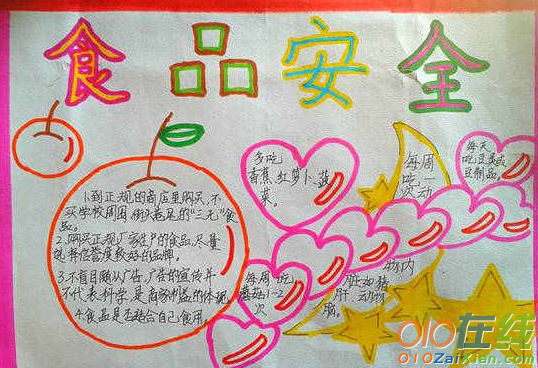 食品安全
1.到正规的商店里购买,不
买学校周围、街头巷尾的"三无"食
品。
2.购买正规厂家生产的食品,尽量
选择信誉度较好的品牌;
3.不盲目随从广告,广告的宣传并
不代表科学,是商家利益的体现
4.食品是否适合自己食用。
多吃
香蕉红萝卜蔬
菜。
每周
吃
次动
物内
脏如猪
肝 动物
脑。
每天
吃豆类或
豆制品。
每周吃
蘑菇1-2
次
010在线
010ZaiXian.com